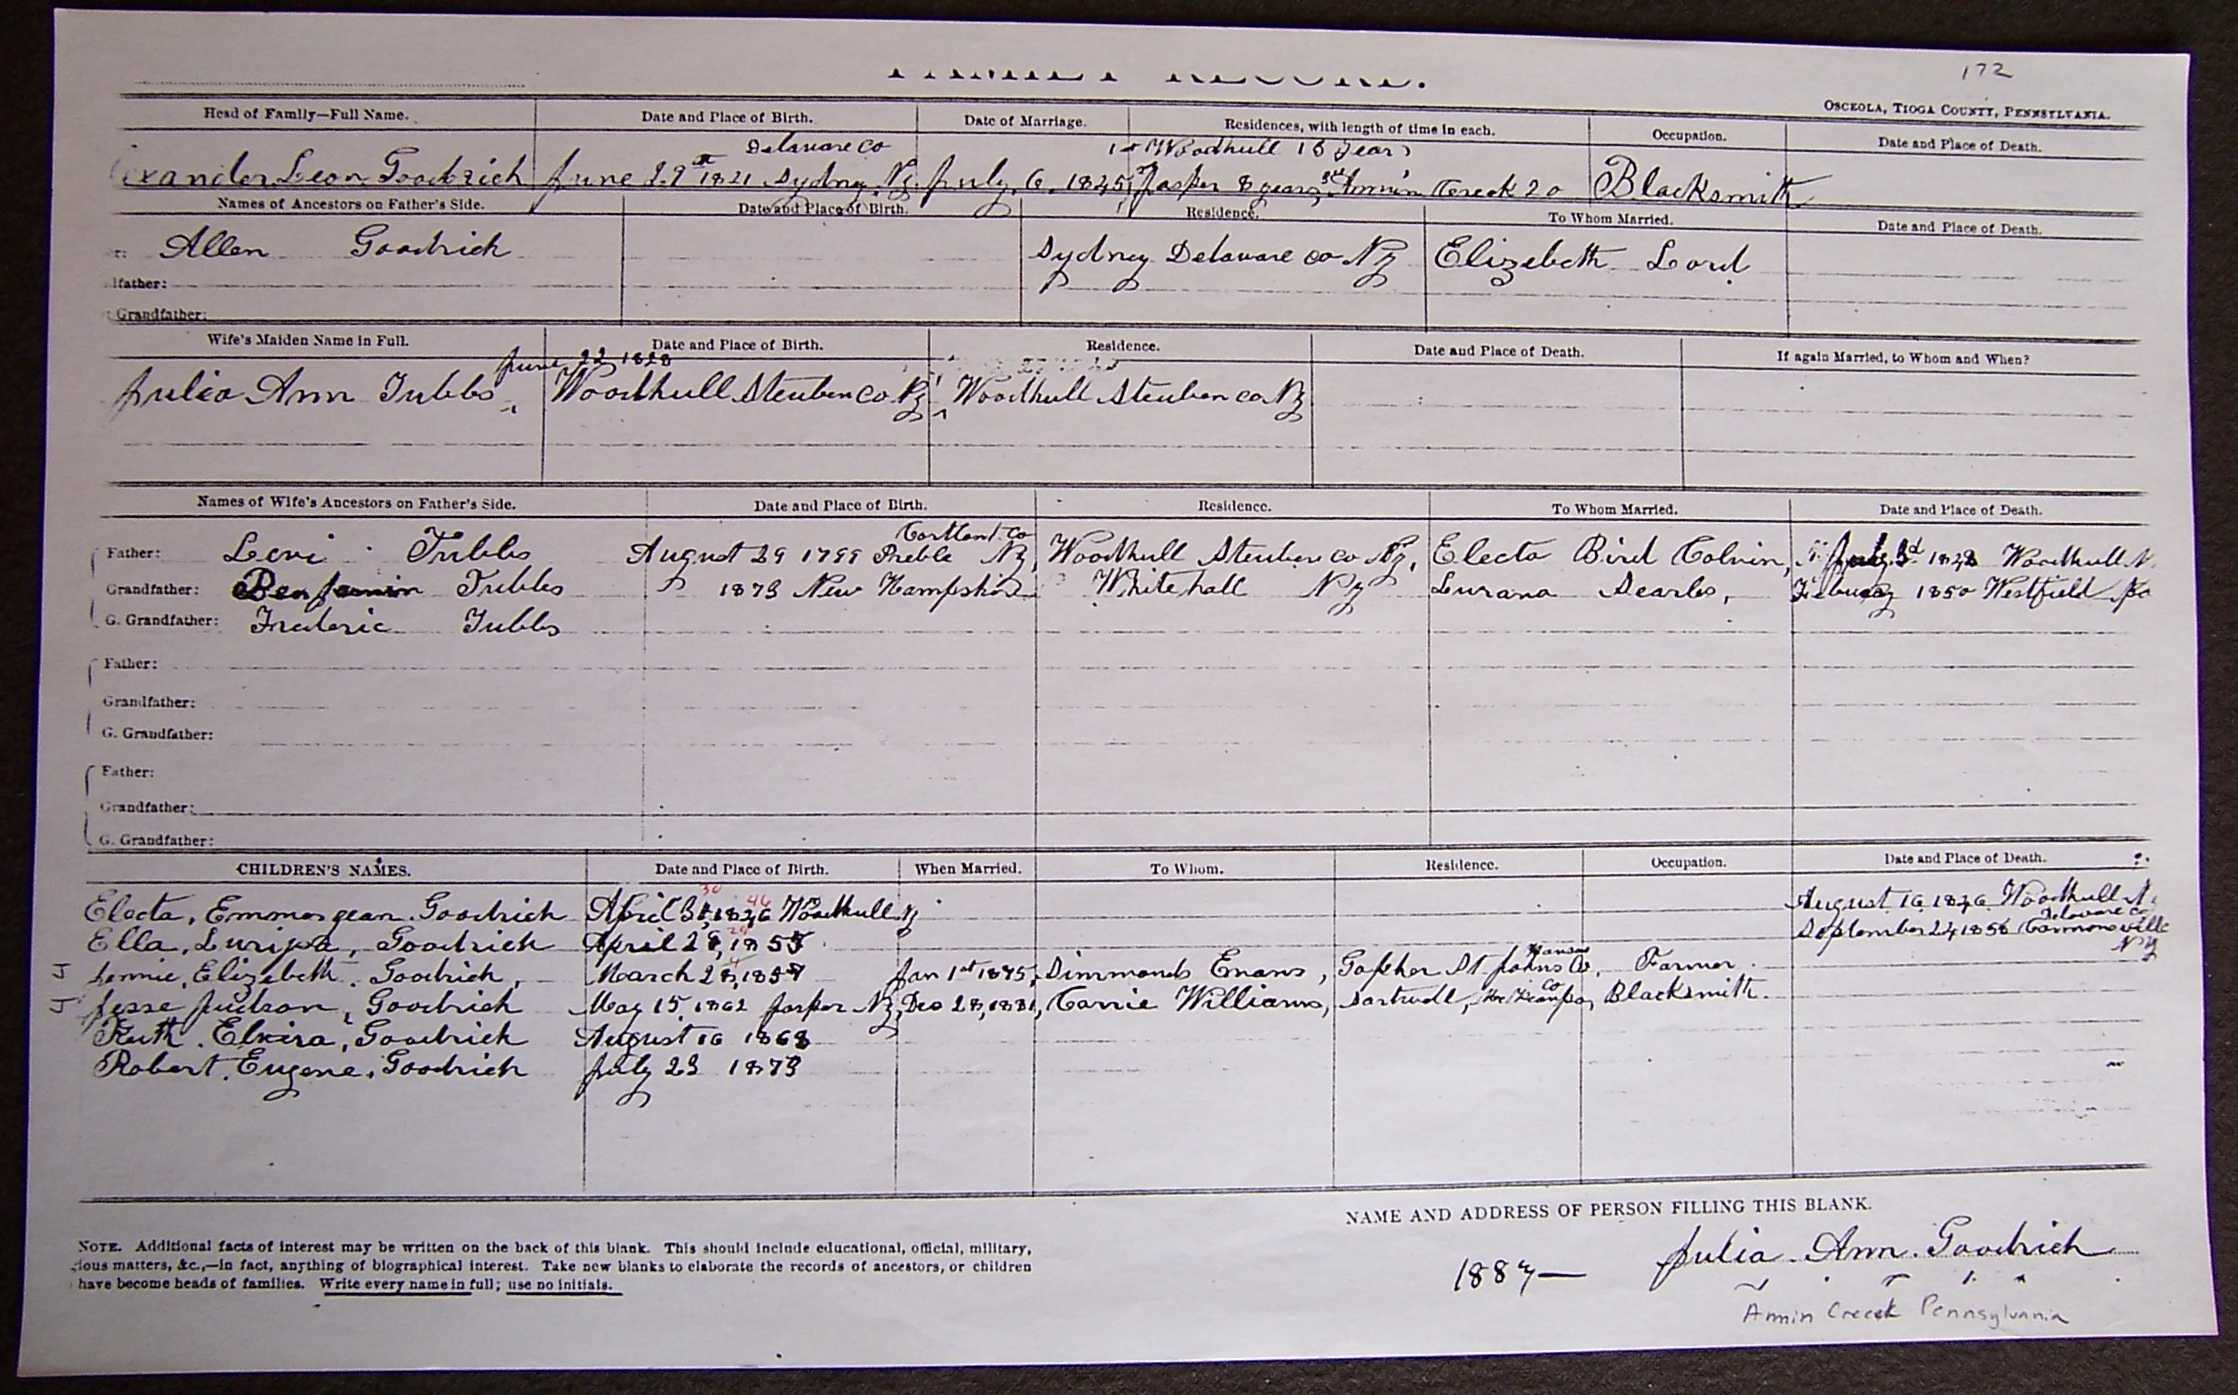 FAMILY RECORD.
172
OSCEOLA, TIOGA COUNTY, PENNSYLVANIA.
Head of Family—Full Name. Date and Place of Birth. Date of Marriage. Residences, with length of time in each. Occupation. Date and Place of Death.
Delaware Co 1st Woodhull 15 years
exander Leon Goodrich June 29th 1821 Sydney Ny. July. 6. 1845, Jasper 8 years, 3rd Armin Creek 20 Blacksmith
Names of Ancestors on Father's Side. Date and Place of Birth. Residence. To Whom Married. Date and Place of Death.
r: Allen Goodrich Sydney Delaware co Ny Elizebeth Lord
dfather:
Grandfather:
Wife's Maiden Name in Full. Date and Place of Birth. Residence. Date and Place of Death. If again Married, to Whom and When?
June 22 1828
Julia Ann Tubbs Woodhull Steuben co. Ny Woodhull Steuben co. Ny
Names of Wife's Ancestors on Father's Side. Date and Place of Birth. Residence. To Whom Married. Date and Place of Death.
Cortlant Co
Father: Levi Tubbs August 29 1799 Preble Ny, Woodhull Steuben co Ny, Electa Bird Colvin, July 3d 1828 Woodhull N
Grandfather: Benjamin Tubbs 1873 New Hampshire Whitehall Ny Lurana Searls, Febuary 1850 Westfield Pa
G. Grandfather: Frederic Tubbs
Father:
Grandfather:
G. Grandfather:
Father:
Grandfather:
G. Grandfather:
CHILDREN'S NAMES. Date and Place of Birth. When Married. To Whom. Residence. Occupation. Date and Place of Death.
30 46
Electa, Emmergean Goodrich April 31, 1846 Woodhull Ny August 16 1846 Woodhull N
Delaware co
Ella, Goodrich April 28, 1855 September 24 1856 Cannonsville
NY
Kansas
Jennie, Elizebeth. Goodrich, March 28, 1857 Jan 1st 1875, Simmonds Evans, Gopher St Johns Co, Farmer
Co
Jesse Judson, Goodrich May 15, 1862 Jasper Ny, Dec 28, 1881, Carrie Williams, Sartwell, McKean Pa, Blacksmith.
Ruth. Elvira, Goodrich August 16 1868
Robert. Eugene. Goodrich July 23 1873
NAME AND ADDRESS OF PERSON FILLING THIS BLANK.
NOTE. Additional facts of interest may be written on the back of this blank. This should include educational, official, military,
ious matters, &c.,—in fact, anything of biographical interest. Take new blanks to elaborate the records of ancestors, or children
have become heads of families. Write every name in full; use no initials.
1887— Julia. Ann. Goodrich
Armin Creeek Pennsylvania